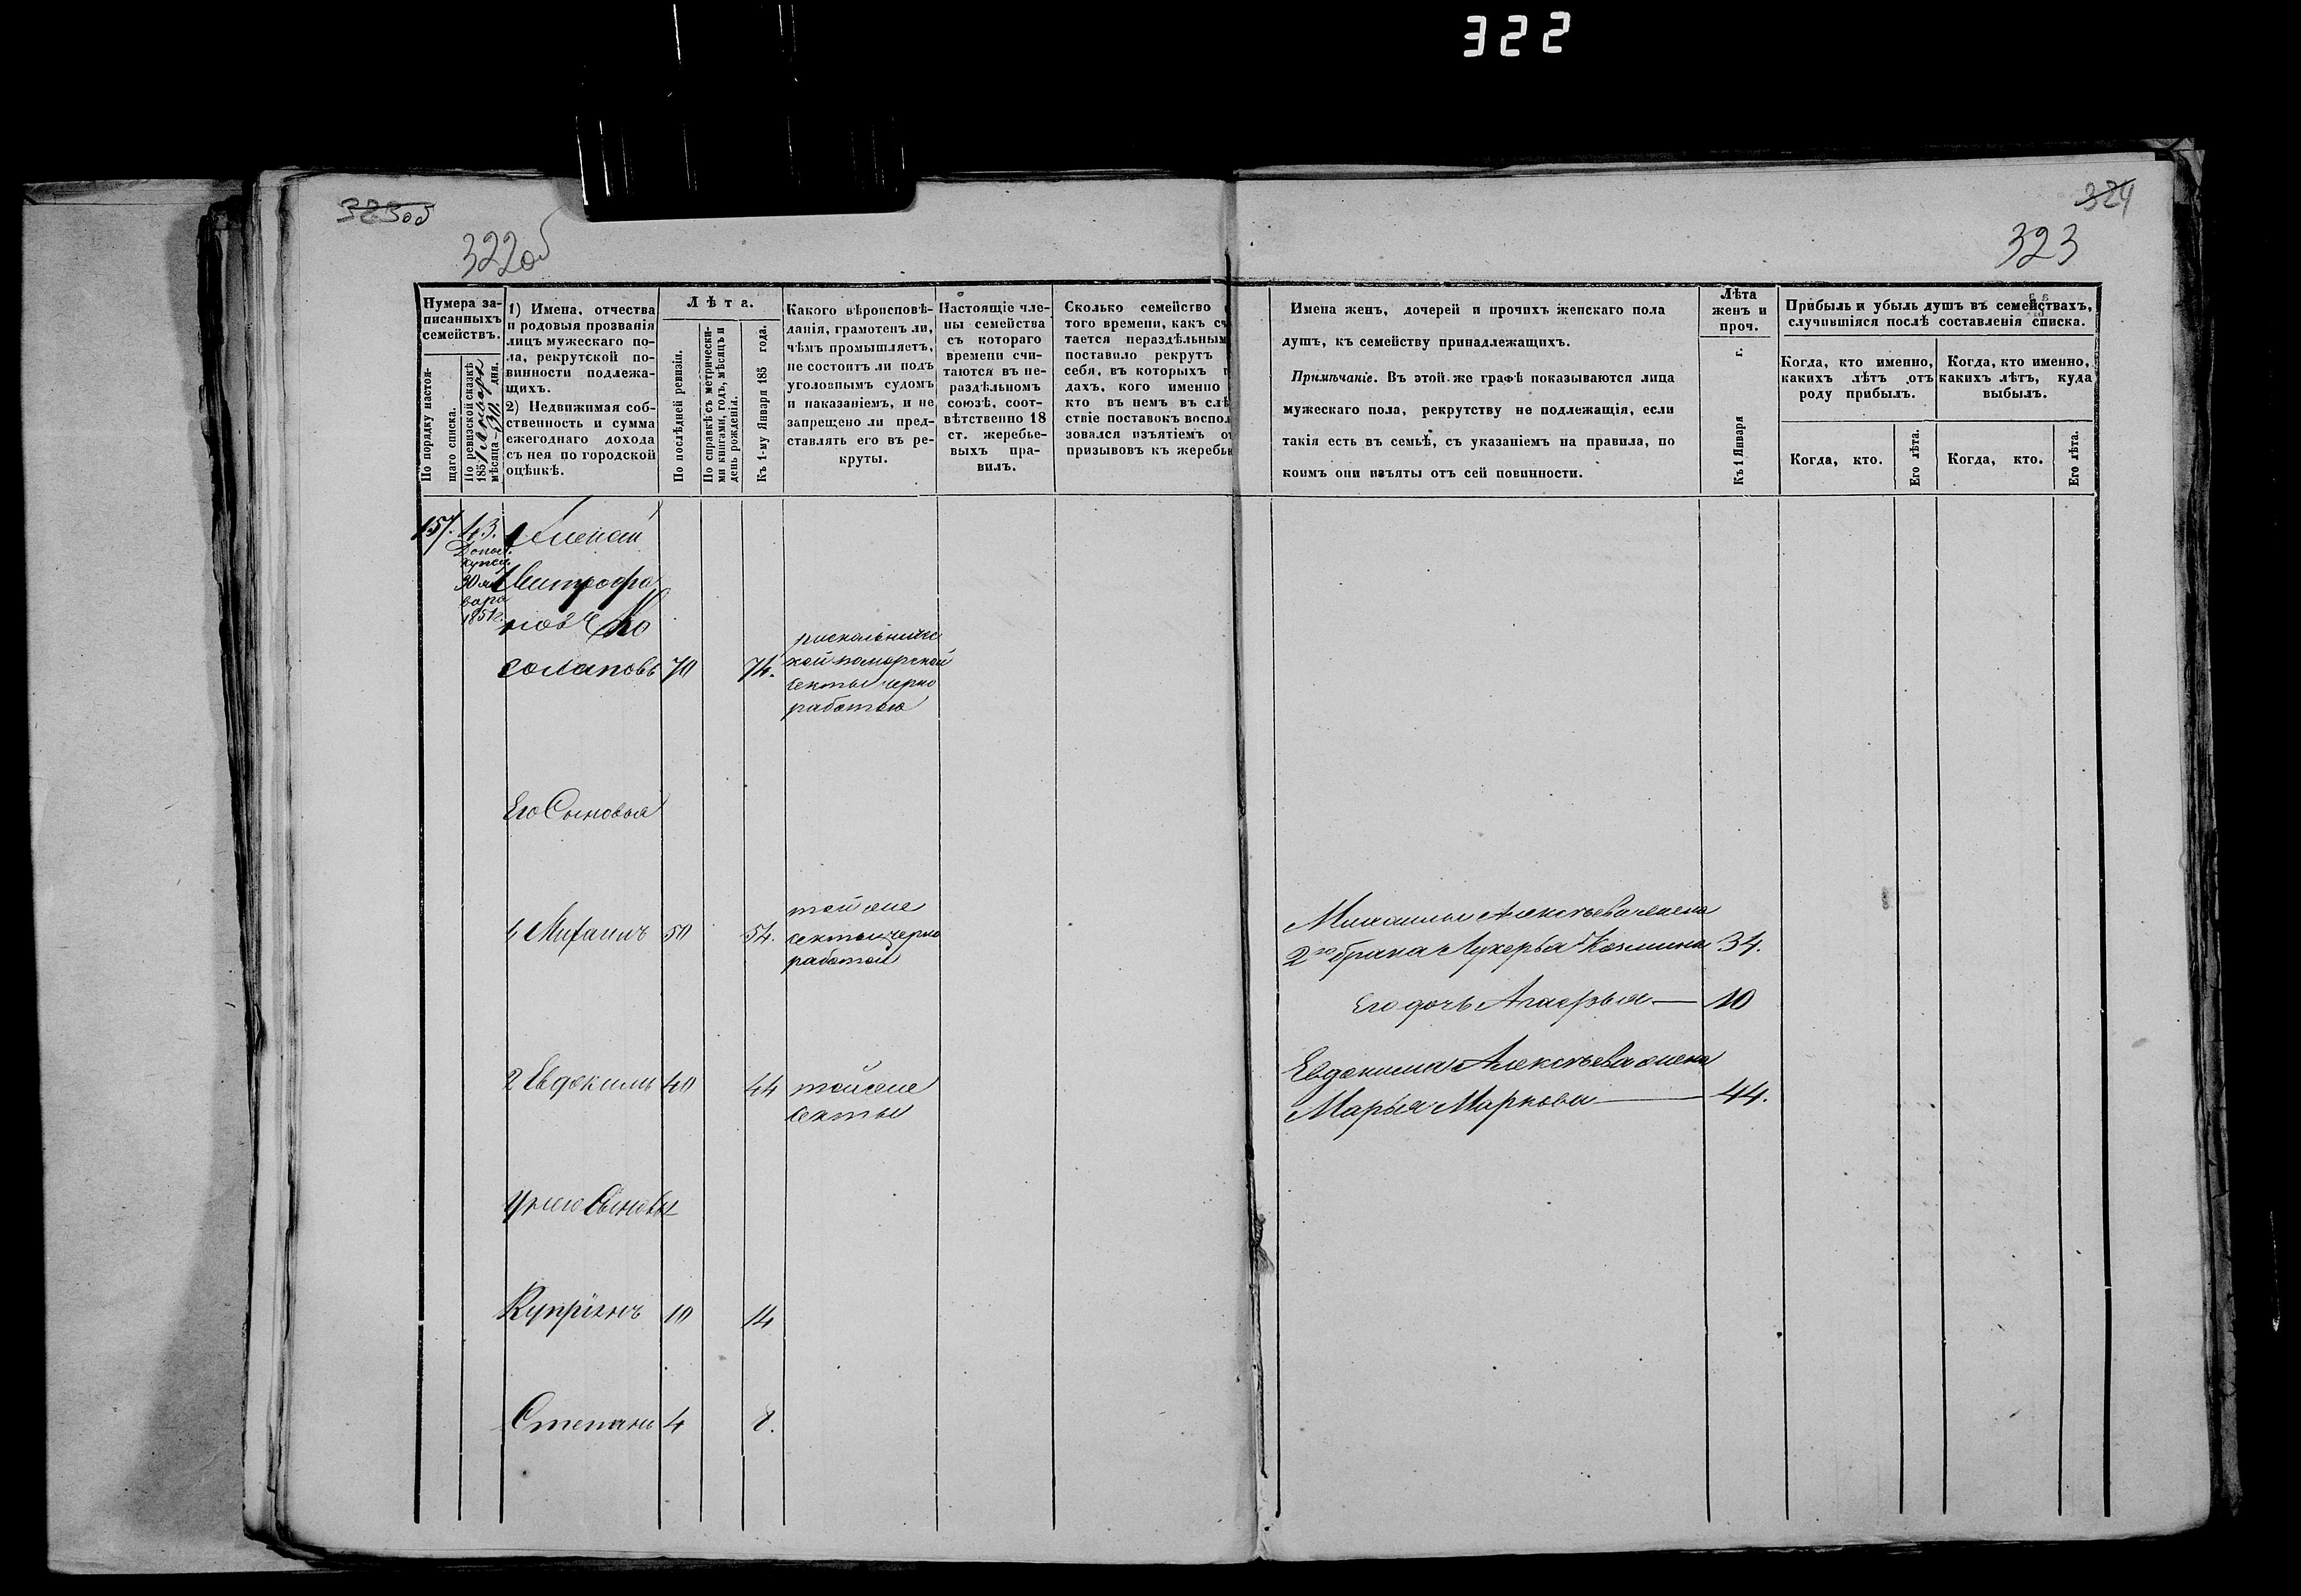 322
323об
322об
324
323
Нумера записанныхъ семействъ.
По порядку настоящаго списка.
По ревизской сказкѣ 1851 января 30 дня. мѣсяца
1) Имена, отчества
и родовыя прозванія
лицъ мужескаго по-
ла, рекрутской по-
винности подлежа-
щихъ.
2) Недвижимая соб-
ственность и сумма
ежегоднаго дохода
съ нея по городской
оцѣнкѣ.
Лѣта.
По послѣдней ревизіи.
По справкѣ съ метрически-
ми книгами, годъ, мѣсяцъ и
день рожденія.
Къ 1-му Января 185 года.
Какого вѣроисповѣ-
данія, грамотенъ ли,
чѣмъ промышляетъ,
не состоитъ ли подъ
уголовнымъ судомъ
и наказаніемъ, и не
запрещено ли пред-
ставлять его въ ре-
круты.
Настоящіе чле-
ны семейства
съ котораго
времени счи-
таются въ не-
раздѣльномъ
союзѣ, соот-
вѣтственно 18
ст. жеребье-
выхъ пра-
вилъ.
Сколько семейство
того времени, какъ сч
тается нераздѣльным
поставило рекрутъ
себя, въ которыхъ г
дахъ, кого именно
кто въ немъ въ слѣ
ствіе поставокъ воспол
зовался изъятіемъ о
призывовъ къ жеребь
Имена женъ, дочерей и прочихъ женскаго пола
душъ, къ семейству принадлежащихъ.
Примѣчаніе. Въ этой же графѣ показываются лица
мужескаго пола, рекрутству не подлежащія, если
такія есть въ семьѣ, съ указаніемъ на правила, по
коимъ они изъяты отъ сей повинности.
Лѣта
женъ и
проч.
Къ 1 Января г.
Прибыль и убыль душъ въ семействахъ,
случившіяся послѣ составленія списка.
Когда, кто именно,
какихъ лѣтъ отъ
роду прибылъ.
Когда, кто именно,
какихъ лѣтъ, куда
выбылъ.
Когда, кто.
Его лѣта.
Когда, кто.
Его лѣта.
157. 43.
30 ян
варя
1851 г.
Алексей
Митрофа
новъ Ко
солаповъ 70 74.
раскольничес
кой поморской
секты черно
работою
Его Сыновья
1 Михаилъ 50 54.
той же
секты черно
работой
Михаилы Алексѣева жена
2го брака Лукерья Козмина 34.
Его дочь 10
2 Евдокимъ 40 44
той же
секты
Евдокима Алексѣева жена
Марья Маркова 44.
У него Сыновья
Купріянъ 10 14
Степанъ 4 8.